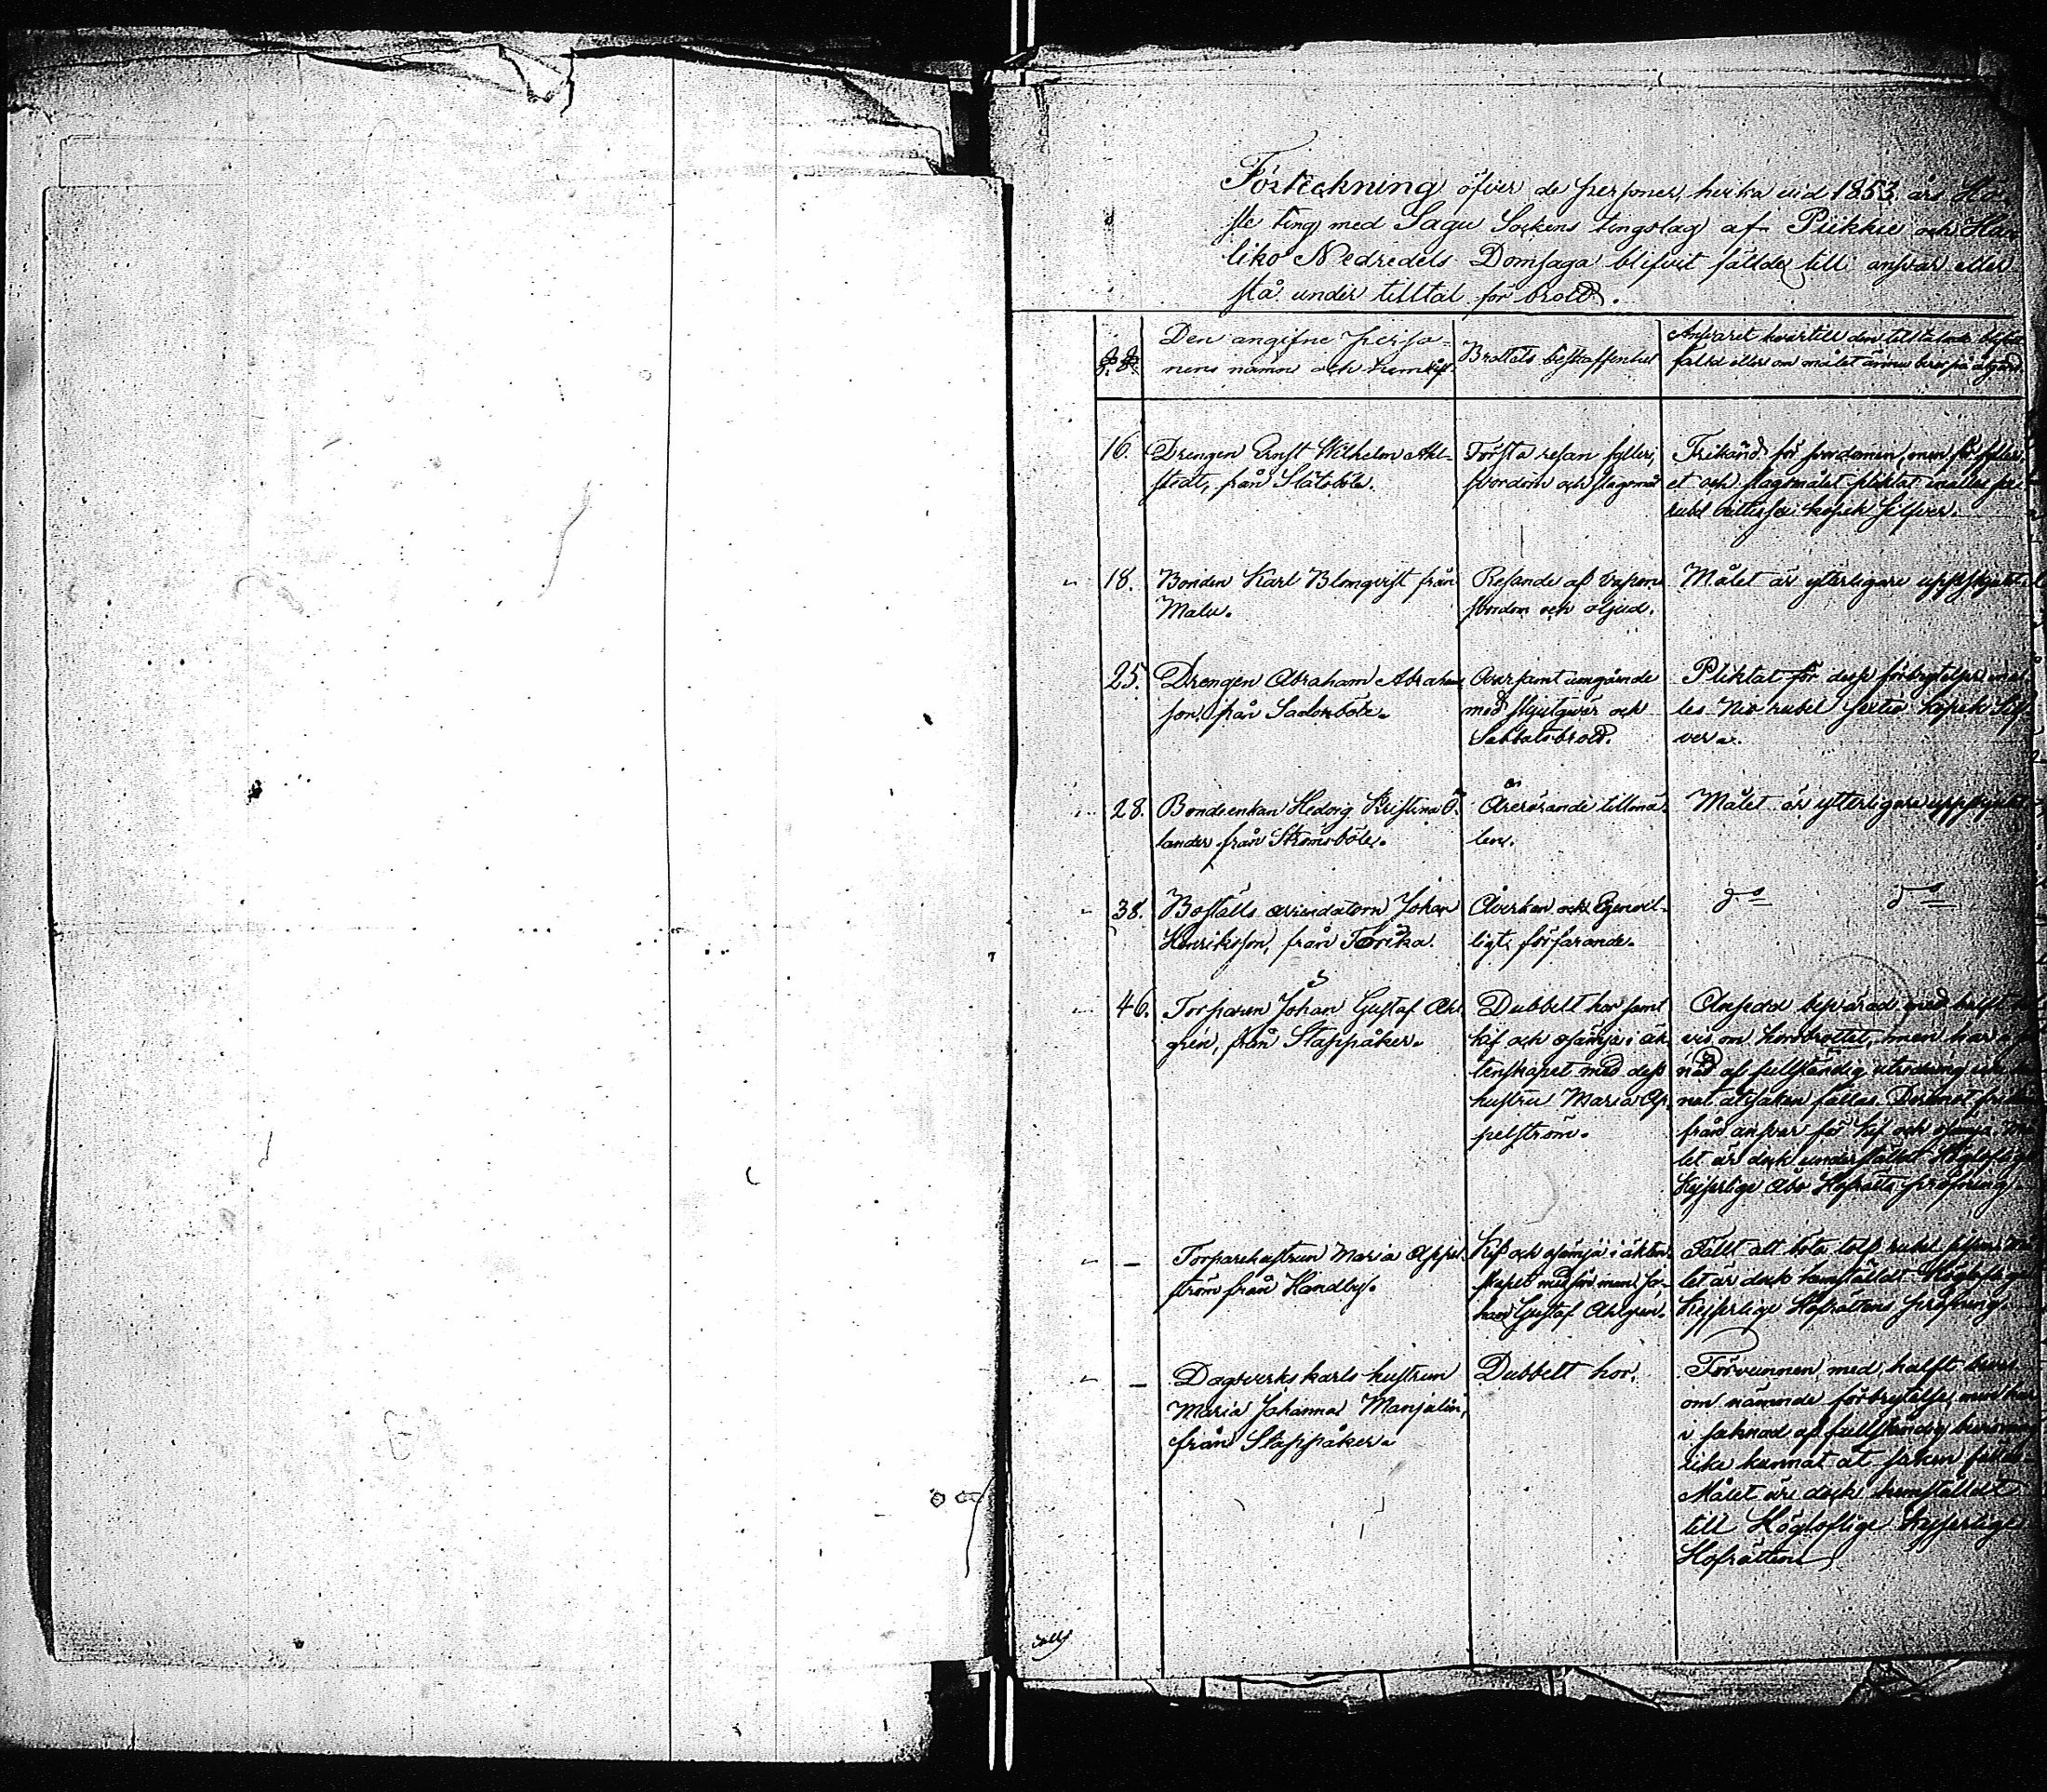 Förteckning öfver de personer, hvilka vid 1853 års Hö-
ste ting med Sagu Sockens tingslag af Piikkie och Ha-
liko Nedredels Domsaga blifvit fällde till ansvar eller
stå under tilltal för brott.
Den angifne perso-
nens namn och hemvist
Brottets beskaffenhet
Ansvaret hvartill den tilltalade blifvit
fälld eller om målet ännu beror på åtgärd.
16. Drengen Ernst Wilhelm Ahl-
stedt, från Slätsböle.
Första resan fylleri,
svordom och slagsmål
Frikänd för svordomen, men för fylleri-
et och slagsmålet pliktat inalles
rubel kopek silfver.
18. Bonden Karl Blomqvist från
Malu.
af vapen
svordom och oljud.
Målet är ytterligare uppskjutet
25. Drengen Abraham Abraham-
son, från Sadonböle.
Ovarsamt umgående
med skjutgevär och
Sabbatsbrott.
Pliktat för dess förbrytelser inal-
les Nio rubel sextio kopek Silf-
ver.
28. Bondeenkan Hedvig Kristina Ö-
lander från Strömsböle.
Ärerörande tillmä-
len.
Målet är ytterligare uppskjutet
38. Boställs arrendatorn Johan
Henriksson, från Torika.
Åverkan och Egenvil-
ligt förfarande.
d:o d:o
46. Torparen Johan Gustaf Ahl-
grén, från Stappåker.
Dubbelt hor samt
kif och osämja i äk-
tenskapet med dess
hustru Maria Ap-
pelström.
Ansedd besvärad med hälft
vis om horsbrottet, men har i
nad af fullständig
nat åt saken fällas. Deremot
från ansvar för kif och osämja. Må-
let är dock underställdt Högloflige
Kejserlige Åbo Hofrätts pröfning.
– Torparehustrun Maria Appel-
ström från Handby.
Kif och osämja i äkten-
skapet med sin man Jo-
han Gustaf Ahlgrén.
Fälld att böta tolf rubel silfver. Må-
let är dock hemställdt Högloflige
Kejserlige Hofrättens pröfning.
– Dagsverkskarls hustrun
Maria Johanna Manjulin,
från Stappåker.
Dubbelt hor.
Förvunnen med halft bevis
om nämnde förbrytelse, men har
i saknad af fullständig bevisning
icke kunnat åt saken fällas.
Målet är dock hemställdt
till Högloflige Kejserlige
Hofrätten